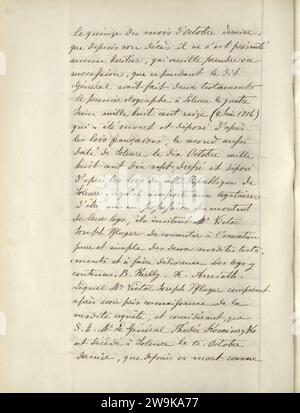 le quinze du mois d'octobre dernier,
que depuis son décès, il ne s'est présenté
aucun héritier, qui veuille prendre sa
succession, que cependant le dit
Général avait fait deux testaments
le premier olographe à Soleure le quatre
Juin mille huit cent seize (4 Juin 1816)
qui a été ouvert et déposé d'après
les lois françaises, le second aussi
daté de Soleure, le dix Octobre mille
huit cent dix sept déposé et
d'après les lois de cette République de
Soleure
de leur legs, ils invitent Mr Victor
Joseph Pfluger de consentir à l'exécution
pure et simple des deux susdits testa-
ments et à faire délivrance des legs y
contenus, B. Reilly. X. Amiet.
Lequel Mr Victor Joseph Pfluger comparant
après avoir pris connaissance de la
susdite requête, et considérant que
S. E. Mr le Général Thadé Kosciuszko
est décédé à Soleure le 15. Octobre
dernier, que depuis sa mort comme
alamy
Image ID: 2W9KA77
www.alamy.com